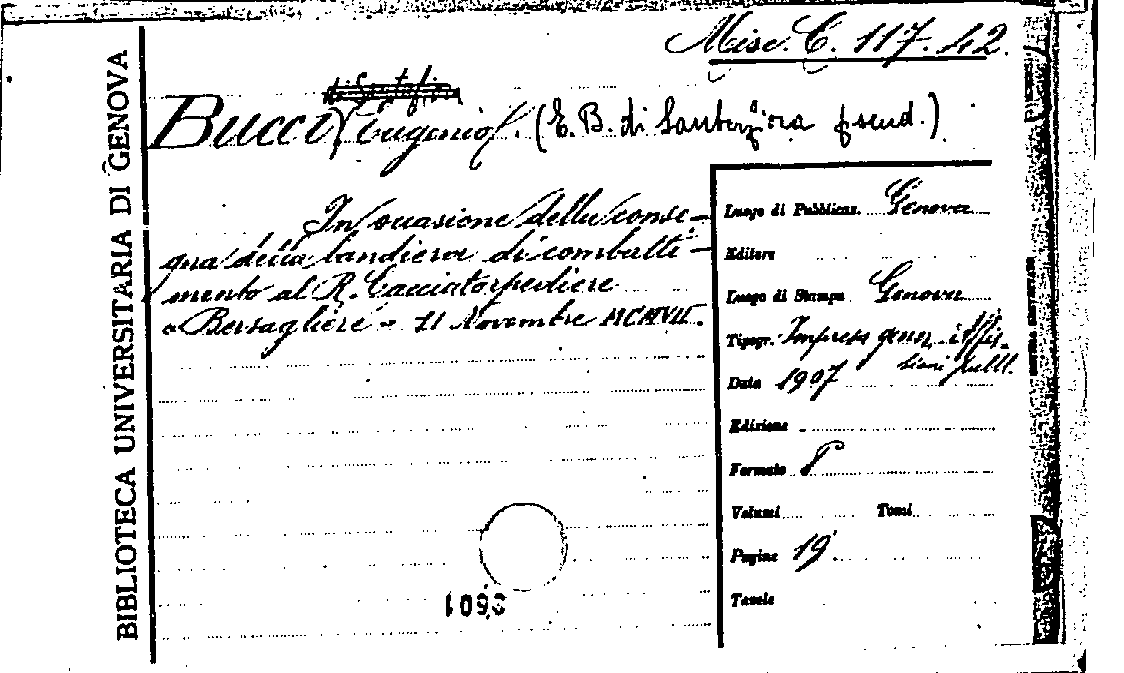 BIBLIOTECA UNIVERSITARIA DI GENOVA
Misc. C. 117.42.
Bucci (Eugenio). (E. B. di Santafiora pseud.)
In occasione della conse-
gna della bandiera di combatti-
mento al R. Cacciatorpediere
"Bersagliere" - 11 Novembre MCMVII.
Luogo di Pubblicaz. Genova
Editore
Luogo di Stampa Genova
Tipogr. Impresa gener. affis-
sioni pubbl.
Data 1907
Edizione
Formato 8
Volumi Tomi
Pagine 19
Tavole